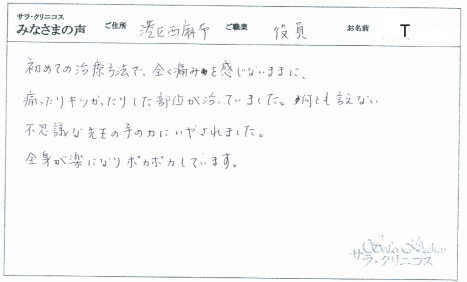 サラ・クリニコス
みなさまの声 ご住所 港区西麻布 ご職業 役員 お名前 T
初めての治療方法で、全く痛みを感じないままに、
痛ったりキツかったりした部位が治っていました。何とも言えない
不思議な先生の手の力にいやされました。
全身が楽になりポカポカしています。
サラ・クリニコス